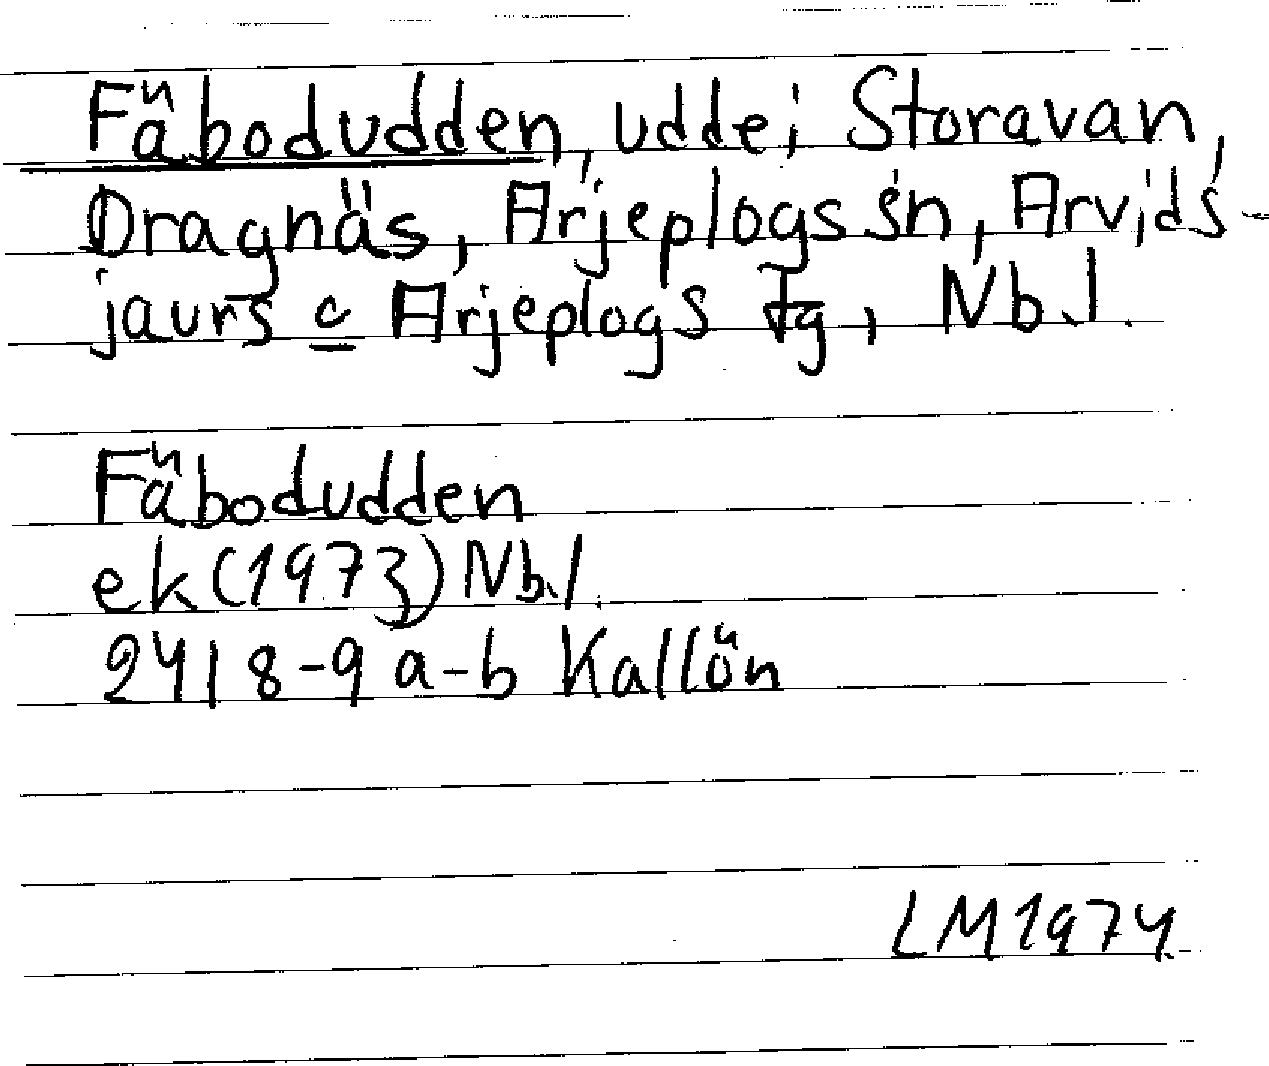 Fäbodudden, udde i Storavan,
Dragnäs, Arjeplogs sn, Arvids-
jaurs o Arjeplogs tg, Nb.l.
Fäbodudden
ek (1973) Nb.l.
24I 8-9 a-b Kallön
LM 1974